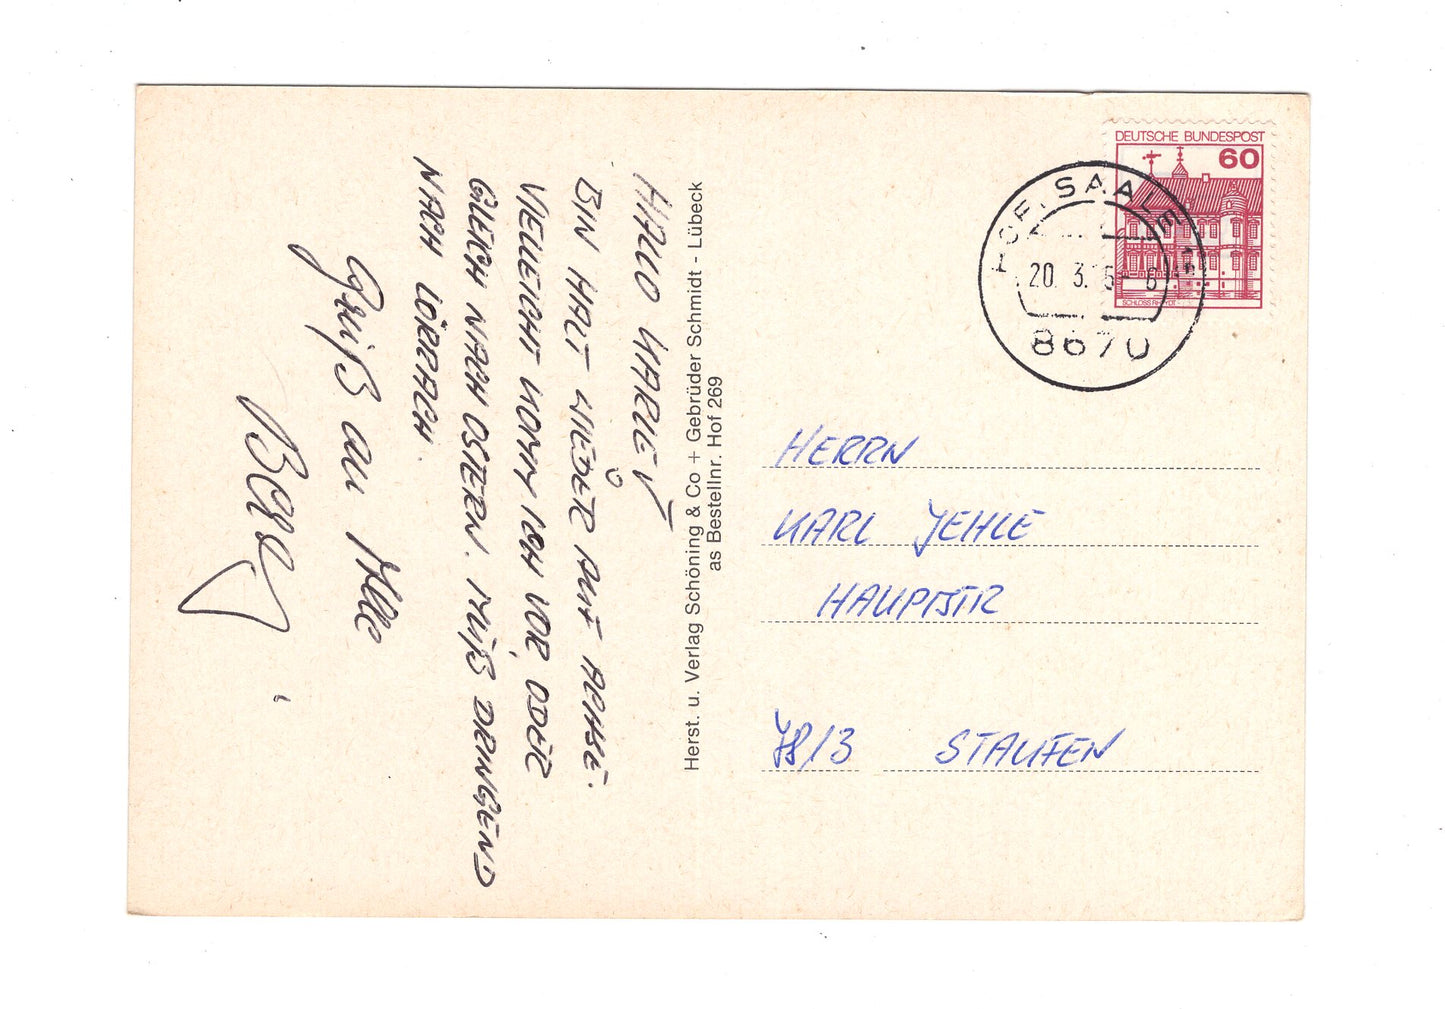 HALLO KARLE!
BIN HALT WIEDER AUF ACHSE.
VIELLEICHT KOMM ICH VOR ODER
GLEICH NACH OSTERN. MUß DRINGEND
NACH LÖRRACH.
Gruß an Alle
Herst. u. Verlag Schöning & Co + Gebrüder Schmidt - Lübeck
as Bestellnr. Hof 269
DEUTSCHE BUNDESPOST
60
SCHLOSS RHEYDT
HOF, SAALE
20. 3. 85 - 6
8670
HERRN
KARL JEHLE
HAUPTSTR
7813 STAUFEN